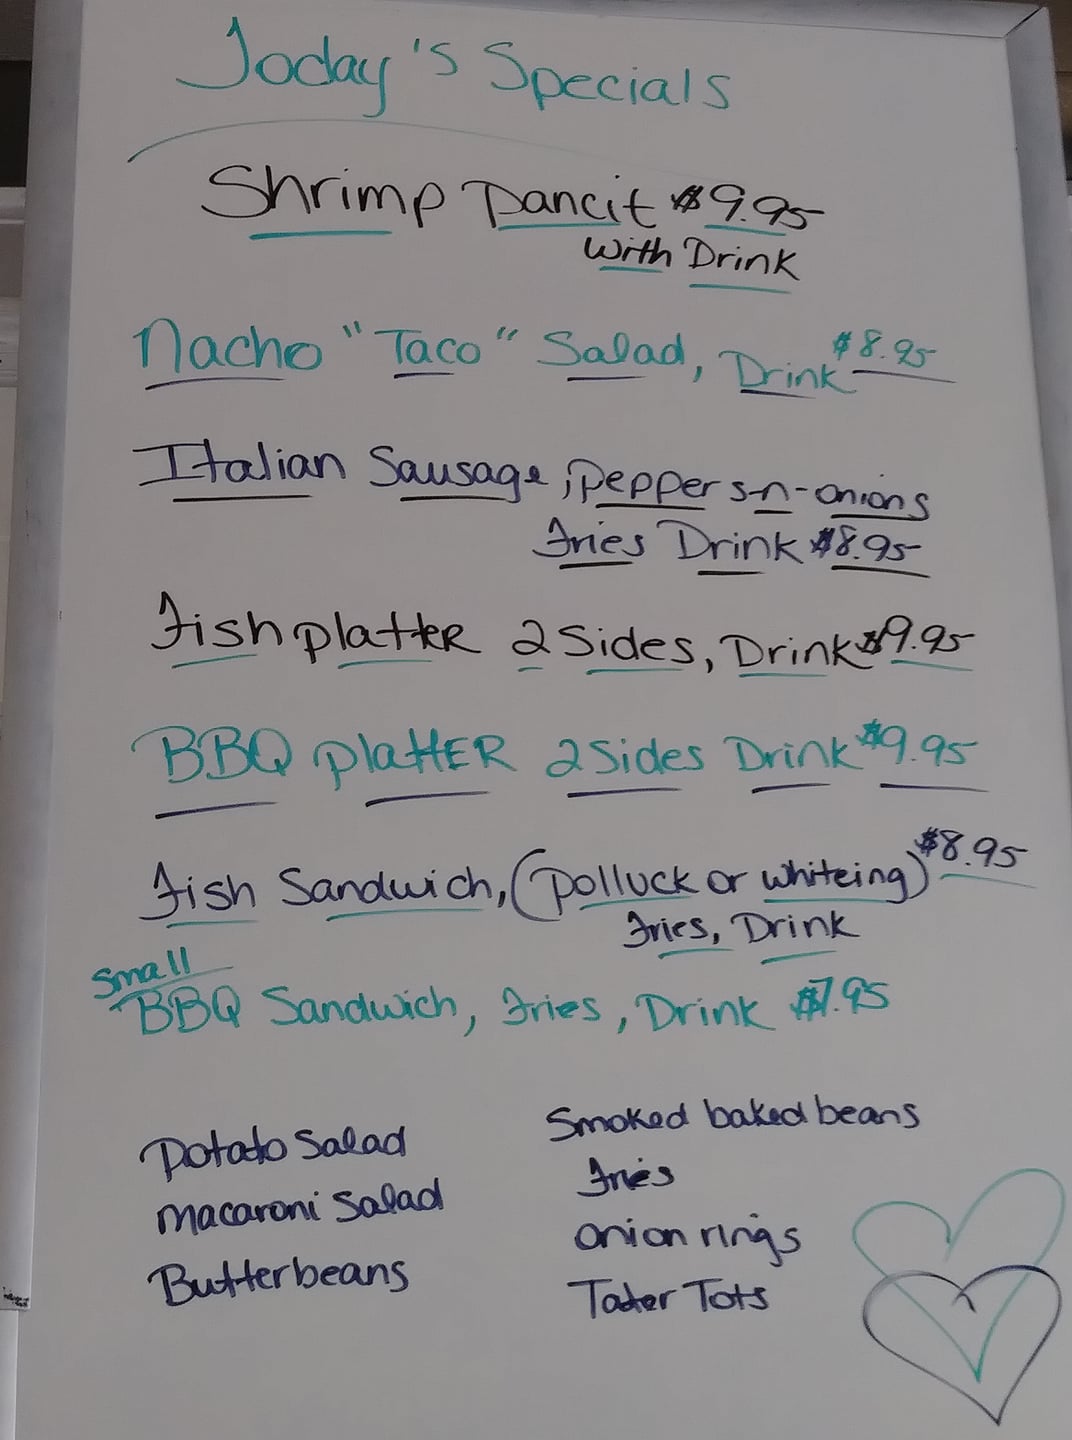 Today's Specials
Shrimp Pancit $9.95
with Drink
Nacho "Taco" Salad, Drink $8.95
Italian Sausage, peppers-n-onions
Fries Drink $8.95
Fish platter 2 Sides, Drink $9.95
BBQ platter 2 Sides Drink $9.95
Fish Sandwich, (polluck or whiteing) $8.95
Fries, Drink
Small
BBQ Sandwich, Fries, Drink $7.95
Potato Salad
Macaroni Salad
Butterbeans
Smoked baked beans
Fries
onion rings
Tater Tots